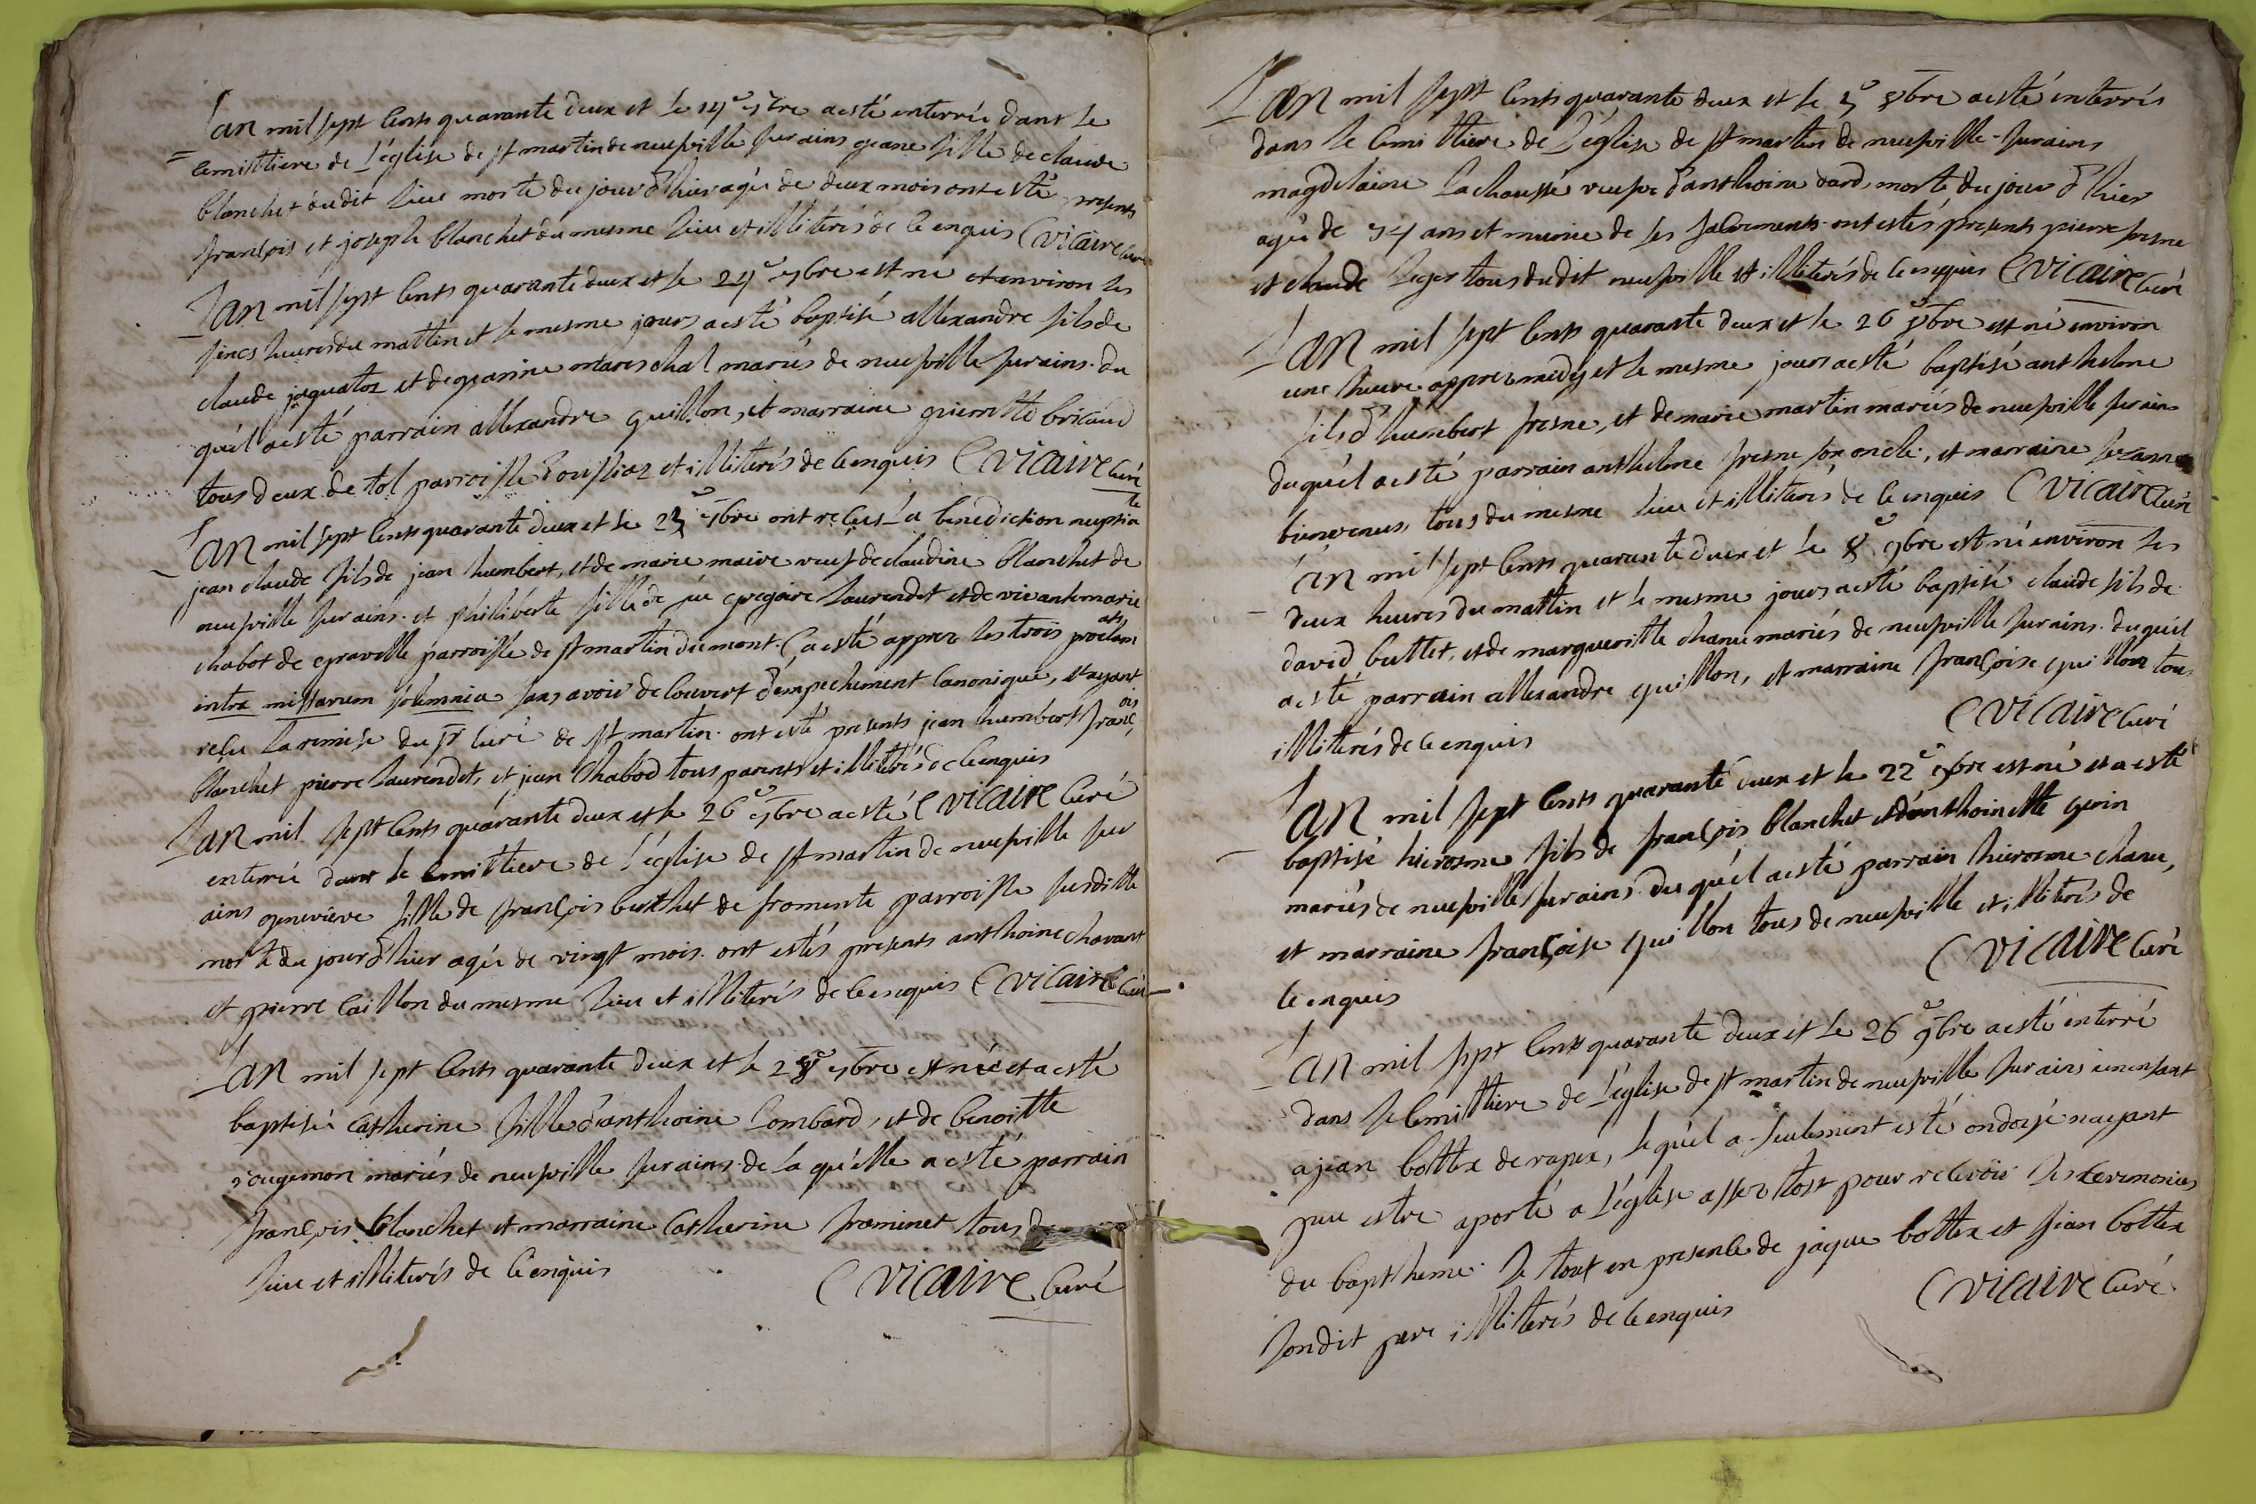 Lan mil sept Cents quarante deux et le 14e 7bre a esté enterrée dans le
Cemittiere de L'église de st martin de neufville sur ains jeane fille de claude
blanchet du dit lieu morte du jour d'hier agée de deux mois ont esté presents
françois et joseph blanchet du mesme lieu et illiterés de ce enquis C vicaire Curé
Lan mil sept Cents quarante deux et le 24e 7bre est né et environ les
sincs heures du mattin et le mesme jours a esté baptisé allexandre fils de
claude jaquatoz et de jeanine mareschal mariés de neufville sur ains. du
quél a esté parrain allexandre guillon, et marraine pierrette bricaud
tous deux de tol parroisse et illiterés de ce enquis C vicaire Curé
Lan mil sept Cents quarante deux et le 25e 7bre ont reçus La bénédiction nuptia le
jean claude fils de jean humbert, et de marie maire veuf de claudine blanchet de
neufville sur ains. et philiberte fille de feu gregoire Laurendet et de vivante marie
chabot de gravelle parroisse de st martin du mont. C a esté apprez les trois proclam ats
intra missarum solemnia sans avoir decouvert d'empechement Canonique, et ayant
reçu La remise du sr Curé de st martin. ont esté presents jean humbert franç ois
blanchet pierre Laurendet, et jean Chabod tous parents et illiterés de ce enquis
Lan mil sept Cents quarante deux et le 26e 7bre a esté C vicaire Curé
enterrée dans le Cemittiere de L'église de st martin de neufville sur
ains genevieve fille de françois berthet de fromente parroisse susditte
morte du jour d'hier agée de vingt mois. ont estés presents anthoine chavant
et pierre Caillon du mesme lieu et illiterés de ce enquis C vicaire Curé
Lan mil sept Cents quarante deux et le 28e 7bre est née et a esté
baptisée Catherine fille d'anthoine Lombard, et de benoitte
rougemon mariés de neufville sur ains. de La quélle a esté parrain
françois blanchet et marraine Catherine framinet tous
lieu et illiterés de ce enquis C vicaire Curé
Lan mil sept Cents quarante deux et le 5e 8bre a esté enterrés
dans le Cemittiere de L'église de st martin de neufville sur ains
magdelaine Lachausse veufve d'anthoine dard, morte du jour d'hier
agée de 74 ans et munie de ses sacrements ont estés presents pierre fresne
et claude Leger tous du dit neufville et illiterés de ce enquis C vicaire Curé
Lan mil sept Cents quarante deux et le 26e 8bre est né environ
une heure apprez midy et le mesme jours a esté baptisé anthelme
fils d'humbert fresne, et de marie martin mariés de neufville sur ains
du quél a esté parrain anthelme fresne son oncle, et marraine sezanne
bienvenus, tous du mesme lieu et illiterés de ce enquis C vicaire Curé
Lan mil sept Cents quarante deux et le 8e 9bre est né environ les
deux heures du mattin et le mesme jours a esté baptisé claude fils de
david buttet, et de marguerite chanu mariés de neufville sur ains. du quél
a esté parrain allexandre guillon, et marraine françoise guillon tous
illiterés de ce enquis C vicaire Curé
Lan mil sept Cents quarante deux et le 22e 9bre est né et a esté
baptisé hierosme fils de françois blanchet et d'anthoinette goin
mariés de neufville sur ains. du quél a esté parrain hierosme chanu,
et marraine françoise guillon tous de neufville et illiterés de
ce enquis C vicaire Curé
Lan mil sept Cents quarante deux et le 26e 9bre a esté enterré
dans le Cemittiere de L'église de st martin de neufville sur ains un enfant
a jean bottex de rapex, le quél a seulement esté ondoyé n'ayant
peu estre aporté a L'église assez tost pour recevoir les ceremonies
du baptheme. le tout en presence de jaque bottex et jean bottex
son dit pere illiterés de ce enquis C vicaire Curé